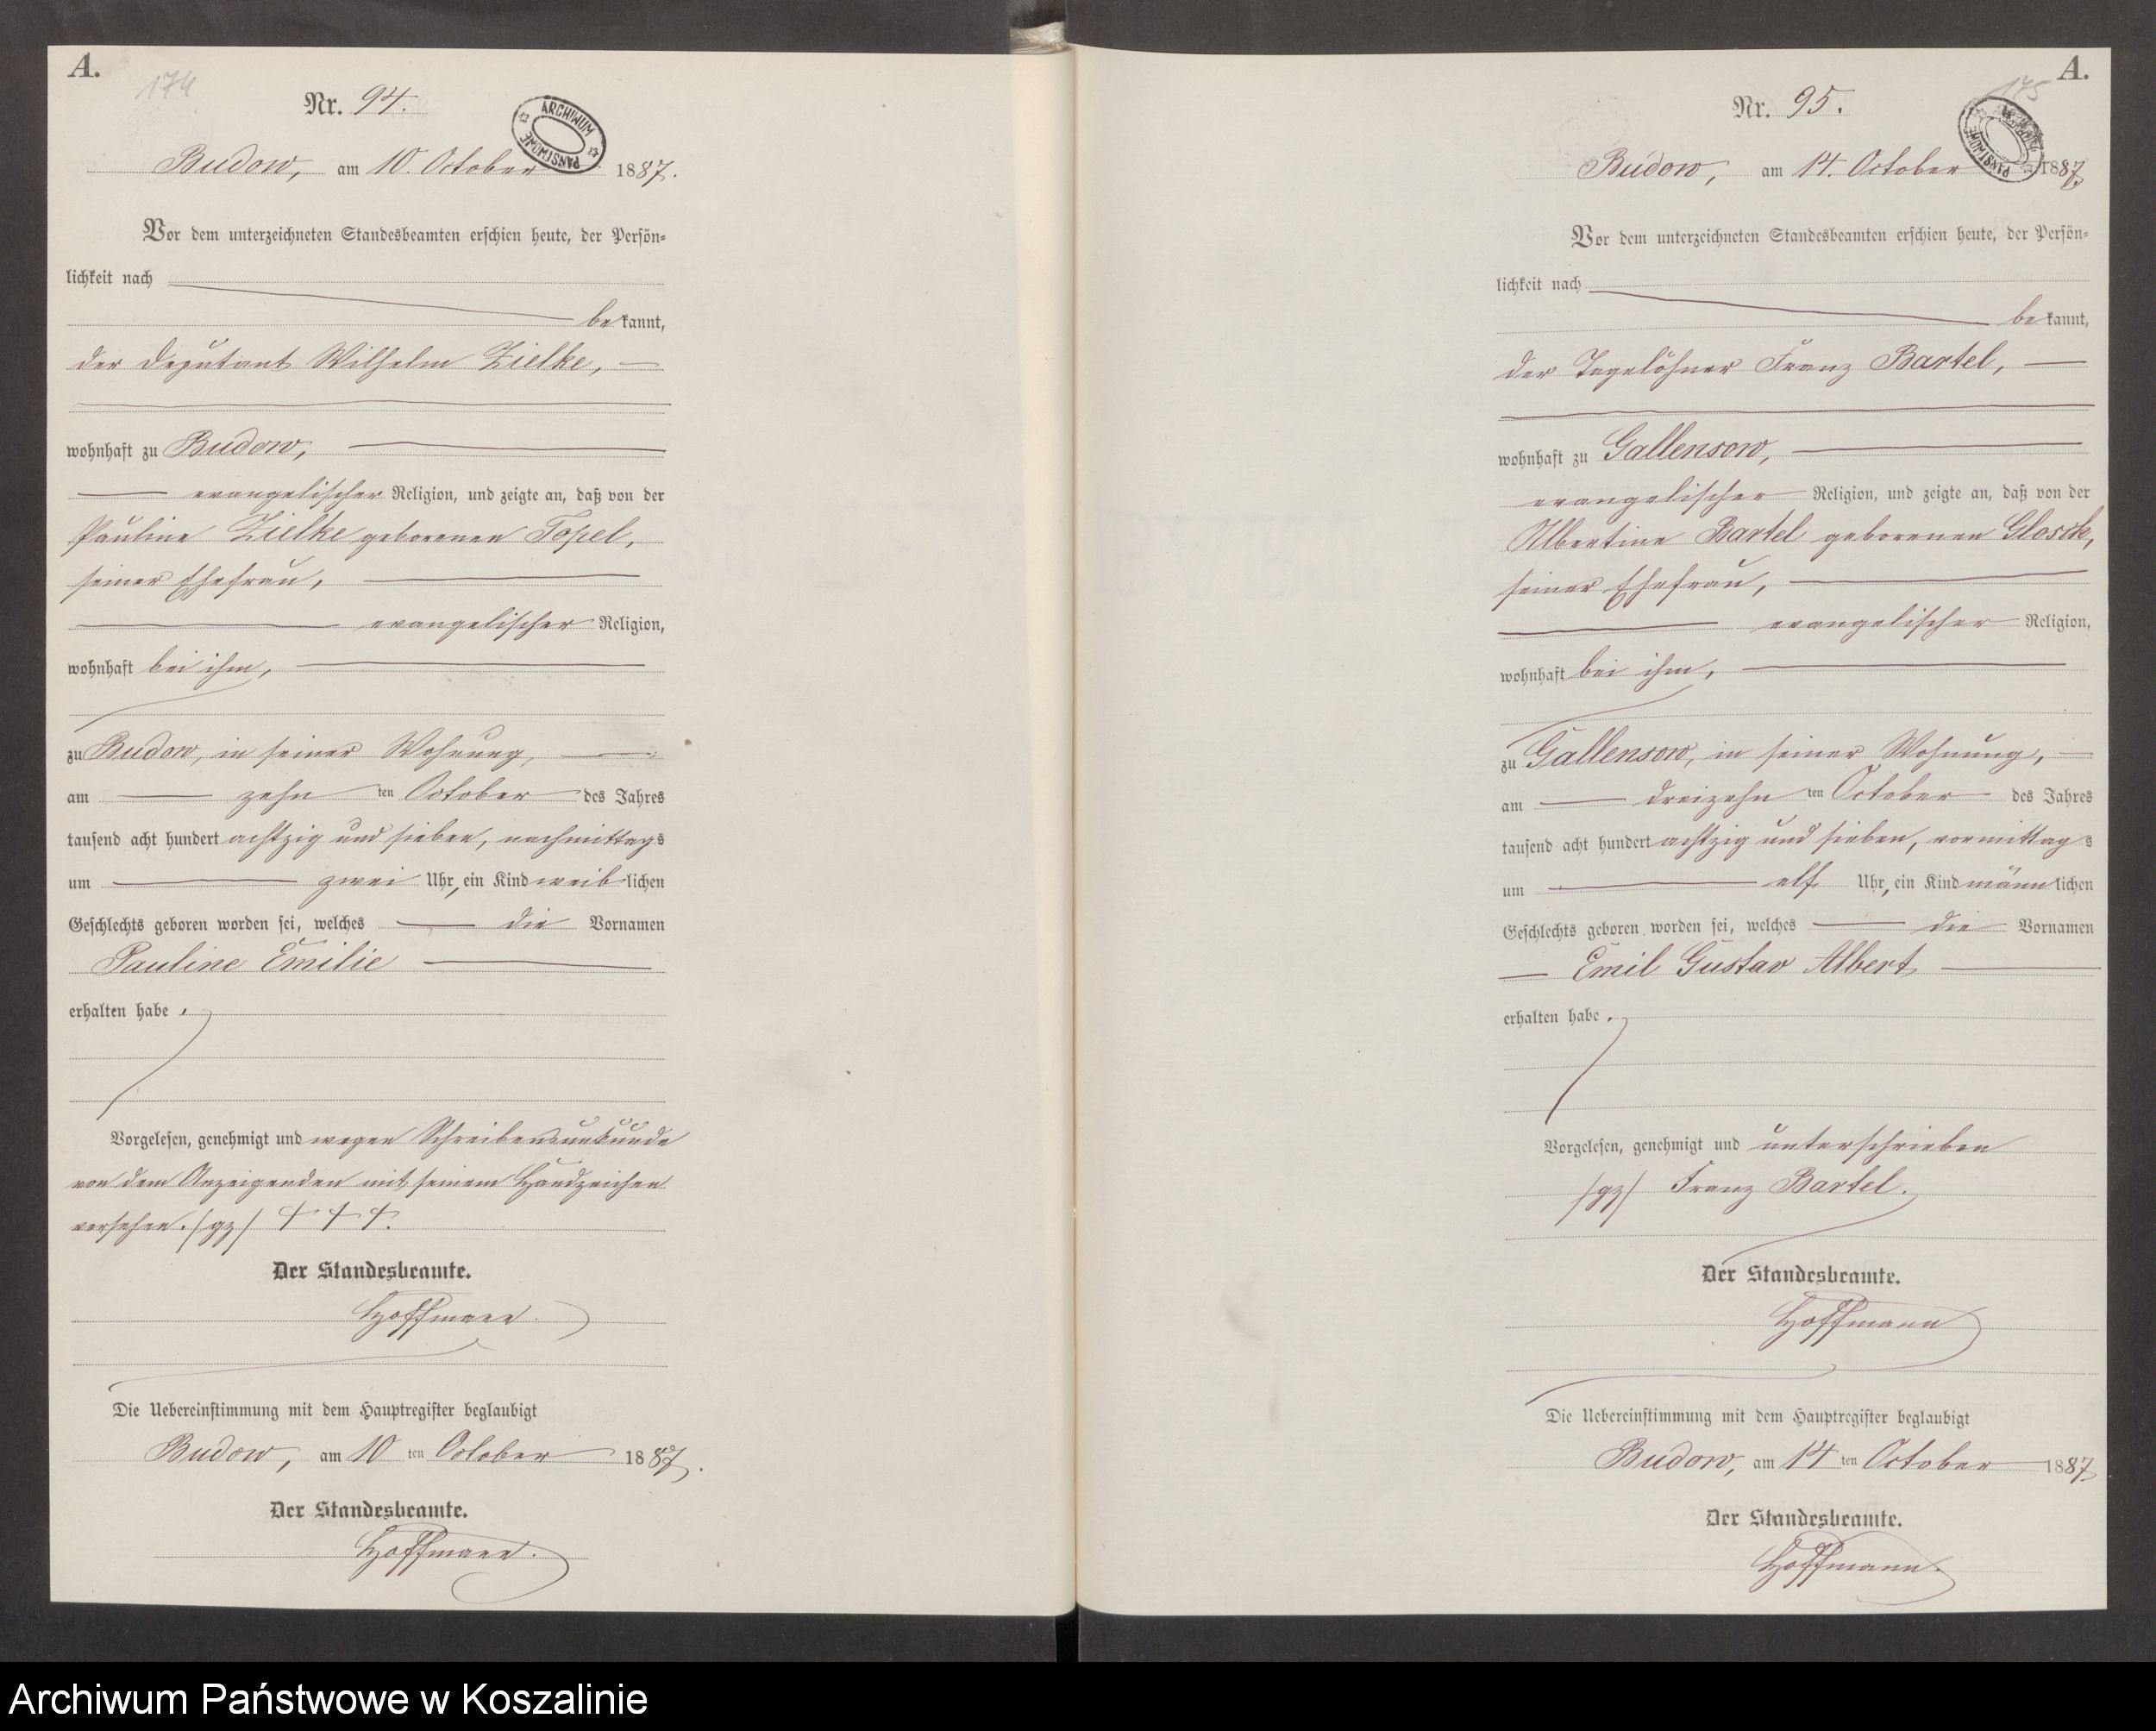 A.
174
Nr. 94.
ARCHIWUM PAŃSTWOWE
Budow, am 10. October 1887.
Vor dem unterzeichneten Standesbeamten erschien heute, der Persön-
lichkeit nach
bekannt,
der Deputant Wilhelm Zielke,
wohnhaft zu Budow,
evangelischer Religion, und zeigte an, daß von der
Pauline Zielke geborenen Topel,
seiner Ehefrau,
evangelischer Religion,
wohnhaft bei ihm,
zu Budow, in seiner Wohnung,
am zehn ten October des Jahres
tausend acht hundert achtzig und sieben, nachmittags
um zwei Uhr, ein Kind weiblichen
Geschlechts geboren worden sei, welches die Vornamen
Pauline Emilie
erhalten habe.
Vorgelesen, genehmigt und wegen Schreibensunkunde
von dem Anzeigenden mit seinem Handzeichen
versehen. /gz/ + + +.
Der Standesbeamte.
Hoffmann.
Die Uebereinstimmung mit dem Hauptregister beglaubigt
Budow, am 10 ten October 1887.
Der Standesbeamte.
Hoffmann.
A.
175
Nr. 95.
ARCHIWUM PAŃSTWOWE
Budow, am 14. October 1887.
Vor dem unterzeichneten Standesbeamten erschien heute, der Persön-
lichkeit nach
bekannt,
der Tagelöhner Franz Bartel,
wohnhaft zu Gallensow,
evangelischer Religion, und zeigte an, daß von der
Albertine Bartel geborenen Glosck,
seiner Ehefrau,
evangelischer Religion,
wohnhaft bei ihm,
zu Gallensow, in seiner Wohnung,
am dreizehn ten October des Jahres
tausend acht hundert achtzig und sieben, vormittags
um elf Uhr, ein Kind männlichen
Geschlechts geboren worden sei, welches die Vornamen
Emil Gustav Albert
erhalten habe.
Vorgelesen, genehmigt und unterschrieben
/gz/ Franz Bartel.
Der Standesbeamte.
Hoffmann
Die Uebereinstimmung mit dem Hauptregister beglaubigt
Budow, am 14 ten October 1887
Der Standesbeamte.
Hoffmann.
Archiwum Państwowe w Koszalinie